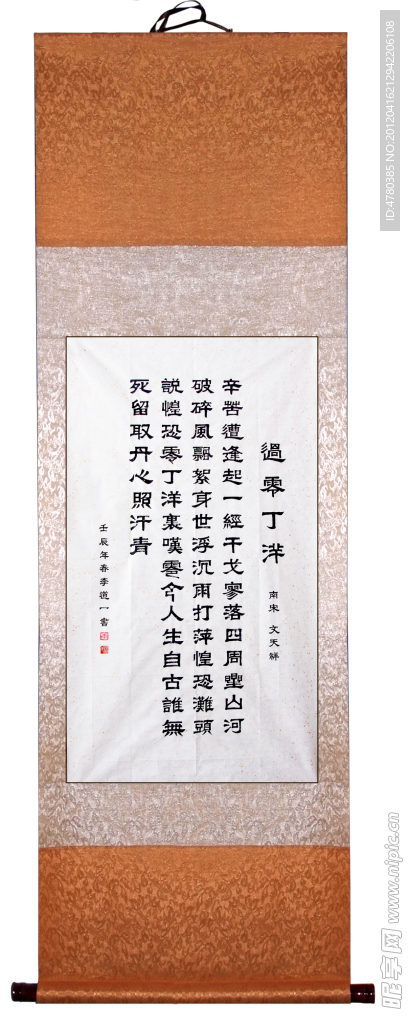 過零丁洋
南宋 文天祥
辛苦遭逢起一經干戈寥落四周山河
破碎風飄絮身世浮沉雨打萍惶恐灘頭
説惶恐零丁洋裏嘆零今人生自古誰無
死留取丹心照汗青
壬辰年春李道一書
ID:4780385 NO:20120416212942206108
昵享网 www.nipic.cn